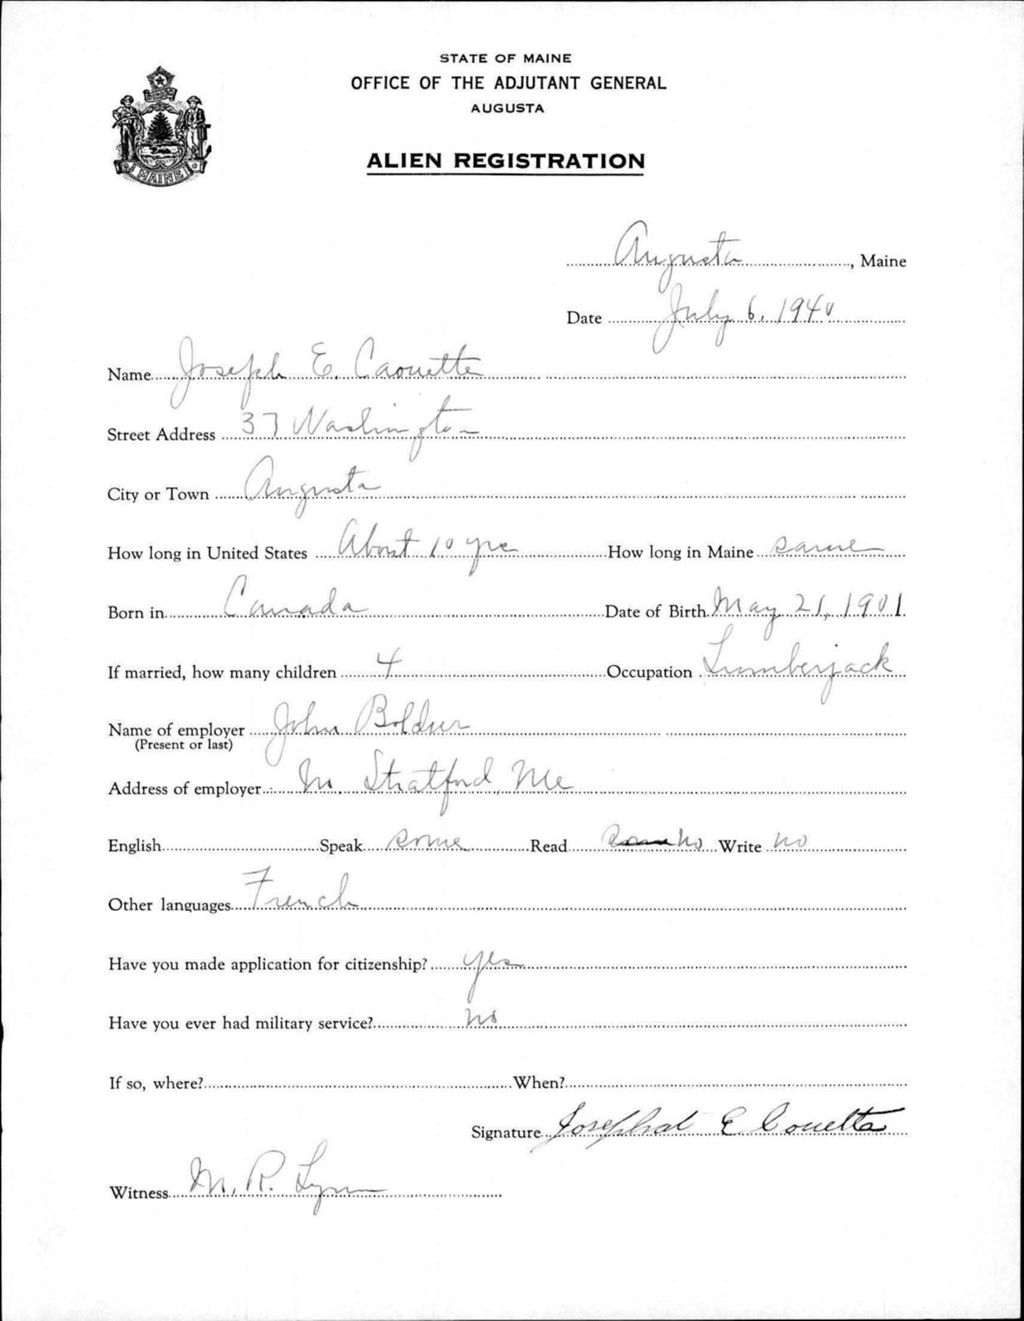 STATE OF MAINE
OFFICE OF THE ADJUTANT GENERAL
AUGUSTA
ALIEN REGISTRATION
MAINE
Augusta, Maine
Date July 6, 1940
Name Joseph E. Caouette
Street Address 37 Washington
City or Town Augusta
How long in United States About 10 yrs How long in Maine same
Born in Canada Date of Birth May 21, 1901
If married, how many children 4 Occupation Lumberjack
Name of employer John Boldur
(Present or last)
Address of employer N. Stratford, Me
English Speak some Read no Write no
Other languages French
Have you made application for citizenship? yes
Have you ever had military service? no
If so, where? When?
Signature Josephat E Couette
Witness M. R. Lynn